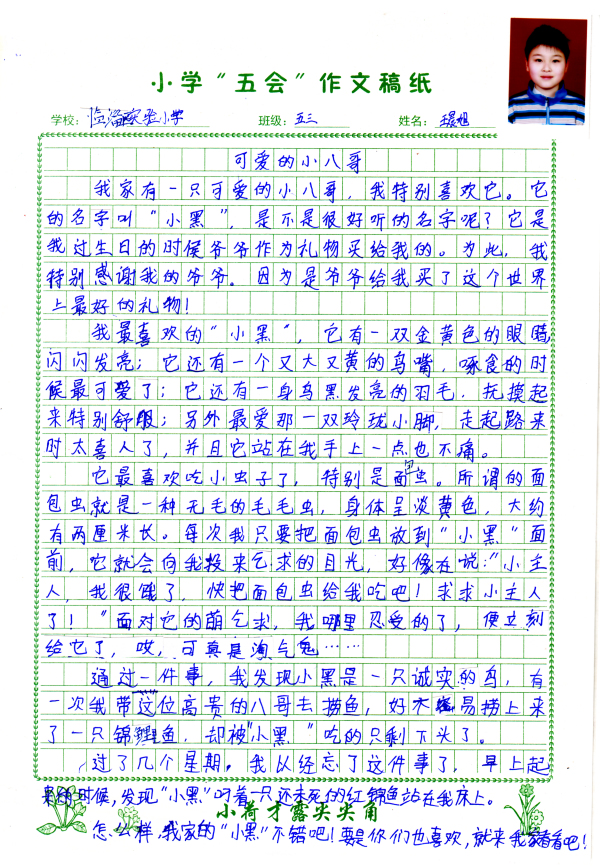 小学“五会”作文稿纸
学校：临淄实验小学 班级：五三 姓名：
可爱的小八哥
我家有一只可爱的小八哥，我特别喜欢它。它
的名字叫“小黑”，是不是很好听的名字呢？它是
我过生日的时侯爷爷作为礼物买给我的。为此，我
特别感谢我的爷爷。因为是爷爷给我买了这个世界
上最好的礼物！
我最喜欢的“小黑”，它有一双金黄色的眼睛，
闪闪发亮；它还有一个又大又黄的鸟嘴，啄食的时
候最可爱了；它还有一身乌黑发亮的羽毛，抚摸起
来特别舒服；另外最爱那一双玲珑小脚，走起路来
时太喜人了，并且它站在我手上一点也不痛。
它最喜欢吃小虫子了，特别是面包虫。所谓的面
包虫就是一种无毛的毛毛虫，身体呈淡黄色，大约
有两厘米长。每次我只要把面包虫放到“小黑”面
前，它就会向我投来乞求的目光，好像在说：“小主
人，我很饿了，快把面包虫给我吃吧！求求小主人
了！”面对它的萌乞求，我哪里忍受的了，便立刻
给它了，哎，可真是淘气鬼……
通过一件事，我发现小黑是一只诚实的鸟，有
一次我带这位高贵的八哥去捞鱼，好不容易捞上来
了一只锦鲤鱼，却被“小黑”吃的只剩下头了。
过了几个星期，我以经忘了这件事了，早上起
来的时候，发现“小黑”叼着一只还未死的红锦鱼站在我床上。
小荷才露尖尖角
怎么样，我家的“小黑”不错吧！要是你们也喜欢，就来我家看看吧！